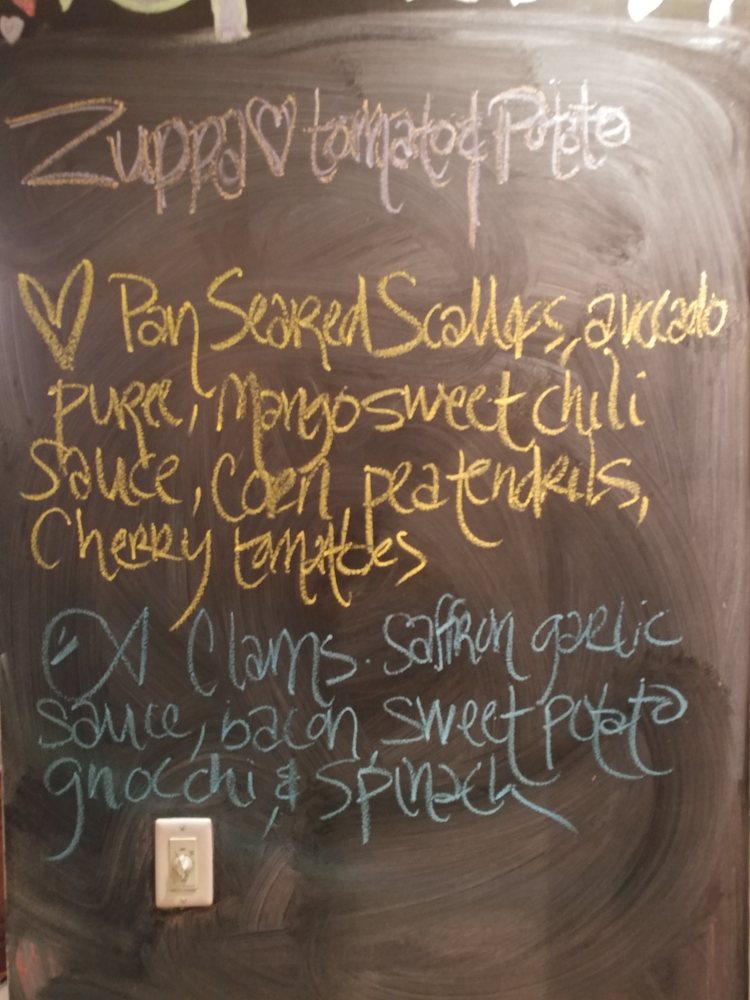 Zuppa ♡ tomato & Potato
♡ Pan Seared Scallops, avocado
puree, Mango sweet chili
Sauce, Corn, pea tendrils,
Cherry tomatoes
Clams. Saffron garlic
sauce, bacon, sweet potato
gnocchi, & Spinach